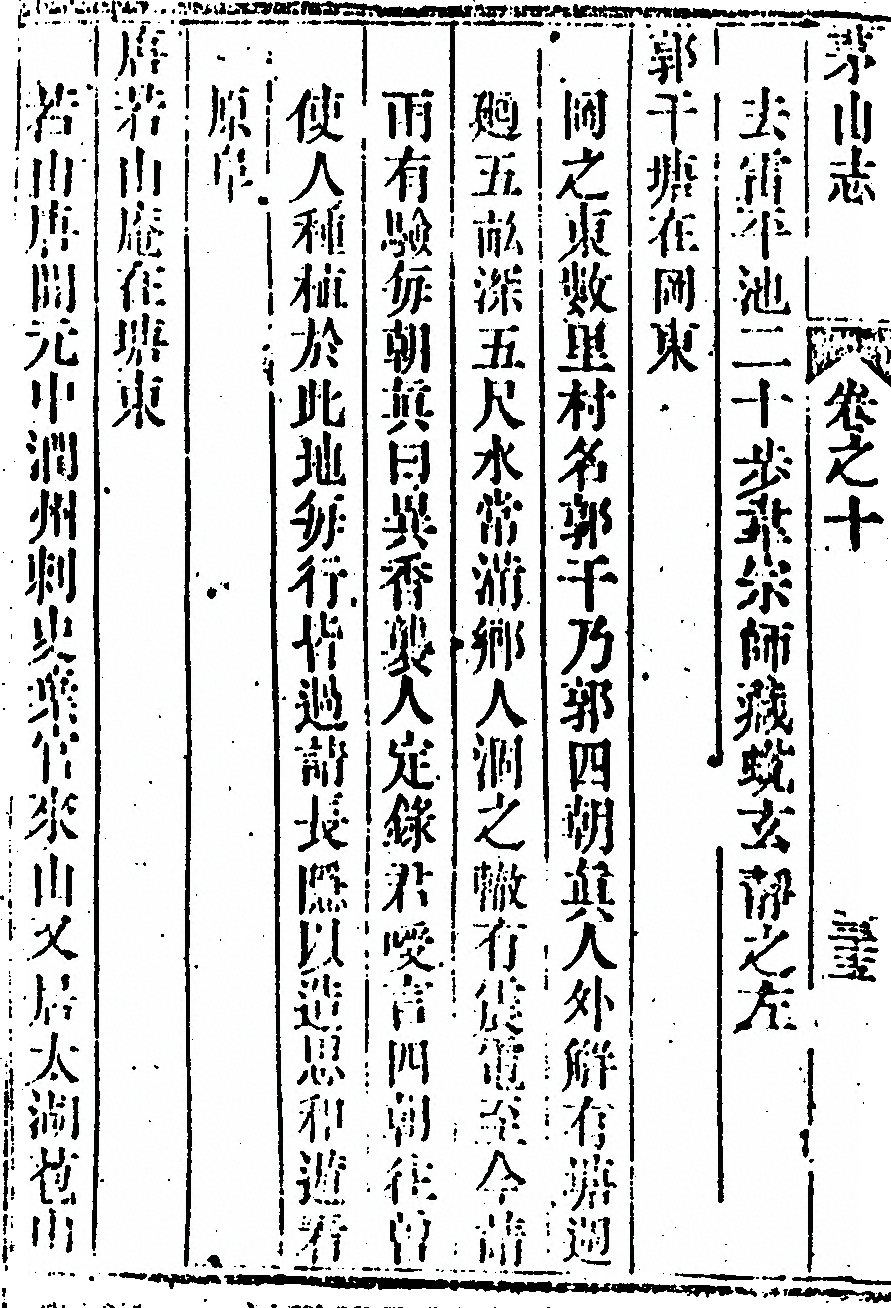 茅山志 卷之十 三五
去雷平池二十步葉宗師藏蛻玄靜之左
郭干塘在岡東
岡之東數里村名郭干乃郭四朝眞人外解有塘週
廻五畝深五尺水常淸鄉人涸之輒有雷電至今請
雨有驗每朝眞日異香襲人定錄君受言四朝往曾
使人種植於此地每行皆過詣長隱以造思和遊看
原阜
唐若山庵在塘東
若山唐開元中潤州刺史棄官來山又居太湖苞山